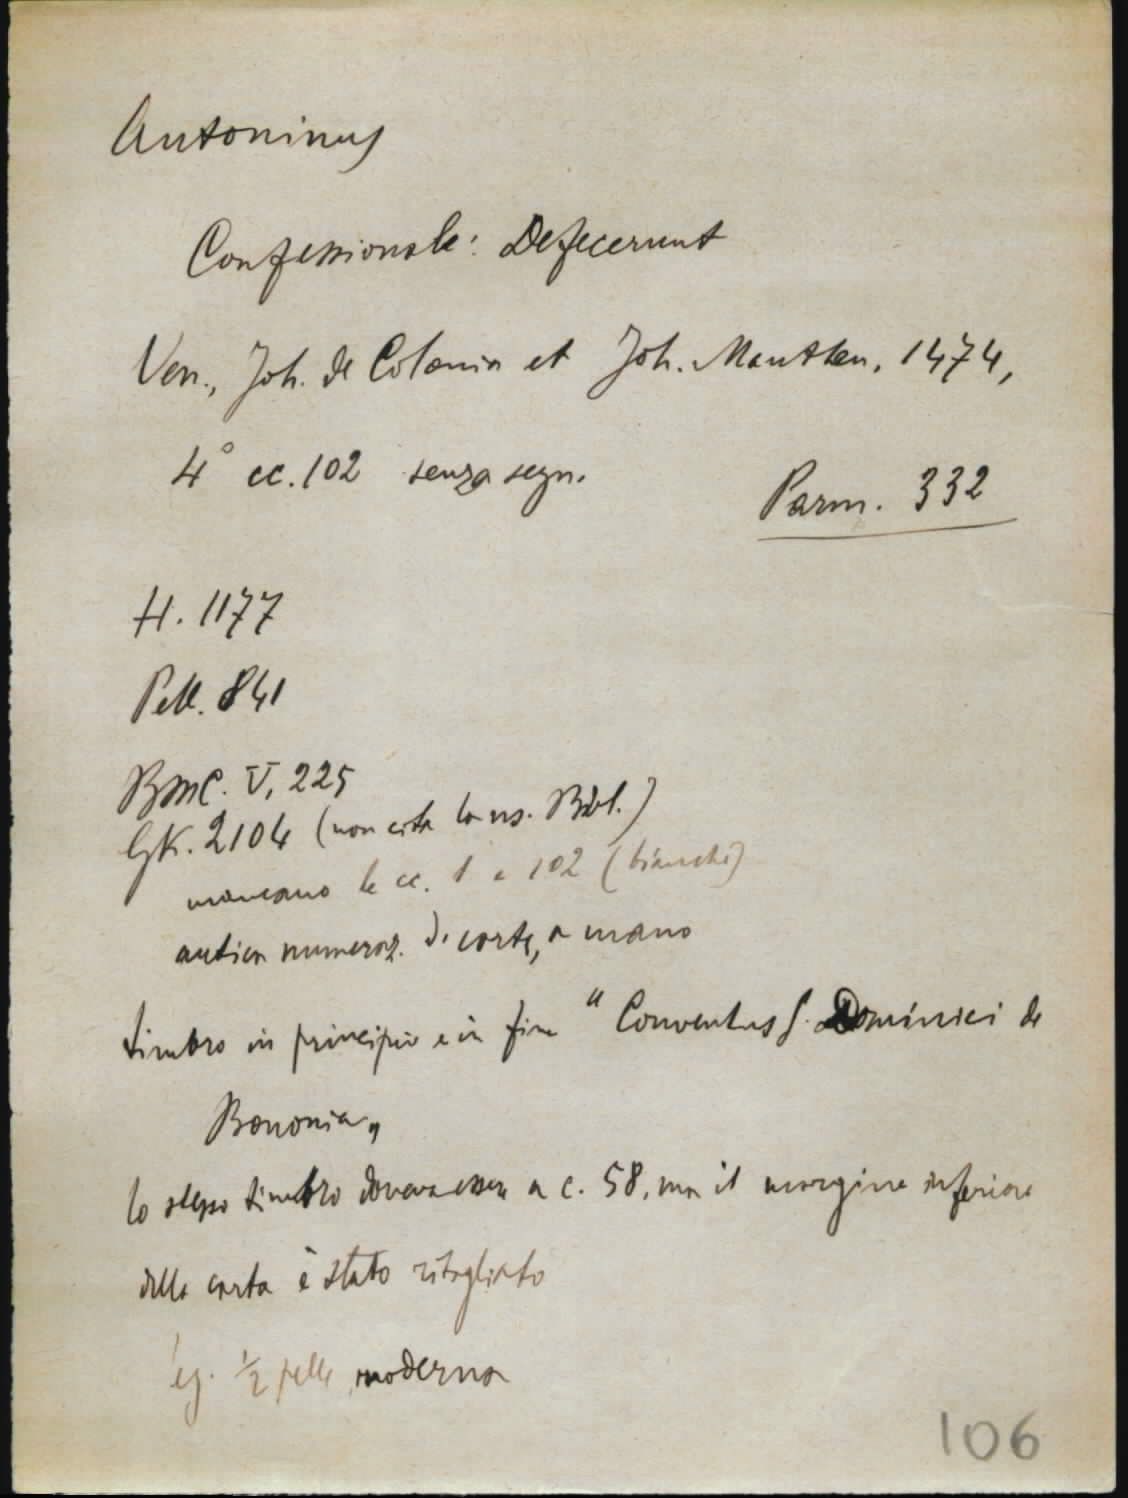 Antoninus
Confessionale: Defecerunt
Ven., Joh. de Colonia et Joh. Manthen, 1474,
4° cc. 102 senza segn.
Parm. 332
H. 1177
Pell. 841
BMC. V, 225
GK. 2104 (non cita la ns. Bibl.)
mancano le cc. 1 e 102 (bianche)
antica numeraz. di carte, a mano
timbro in principio e in fine "Conventus S. Dominici de
Bononia"
lo stesso timbro doveva essere a c. 58, ma il margine inferiore
della carta è stato ritagliato
leg. ½ pelle moderna
106